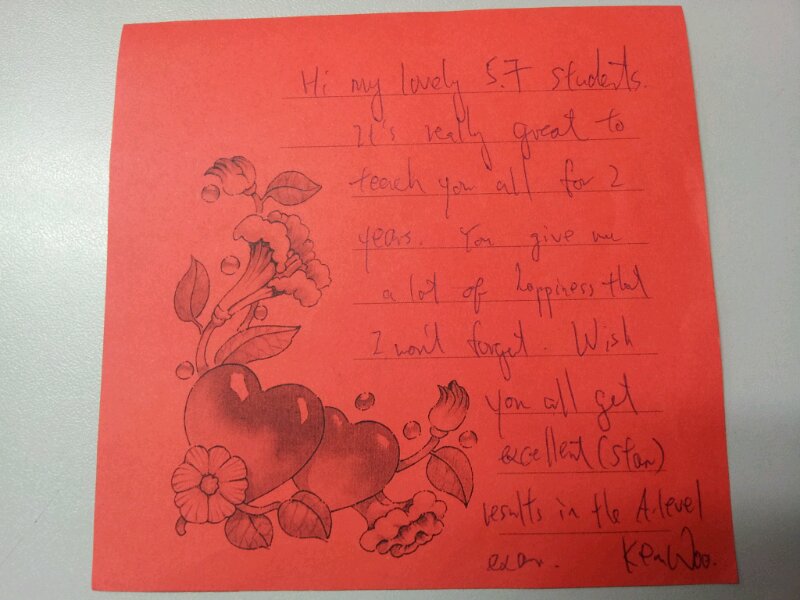 Hi my lovely 5.7 students.
It's really great to
teach you all for 2
years. You give me
a lot of happiness that
I won't forget. Wish
you all get
excellent (star)
results in the A-level
exam. Ken Woo.